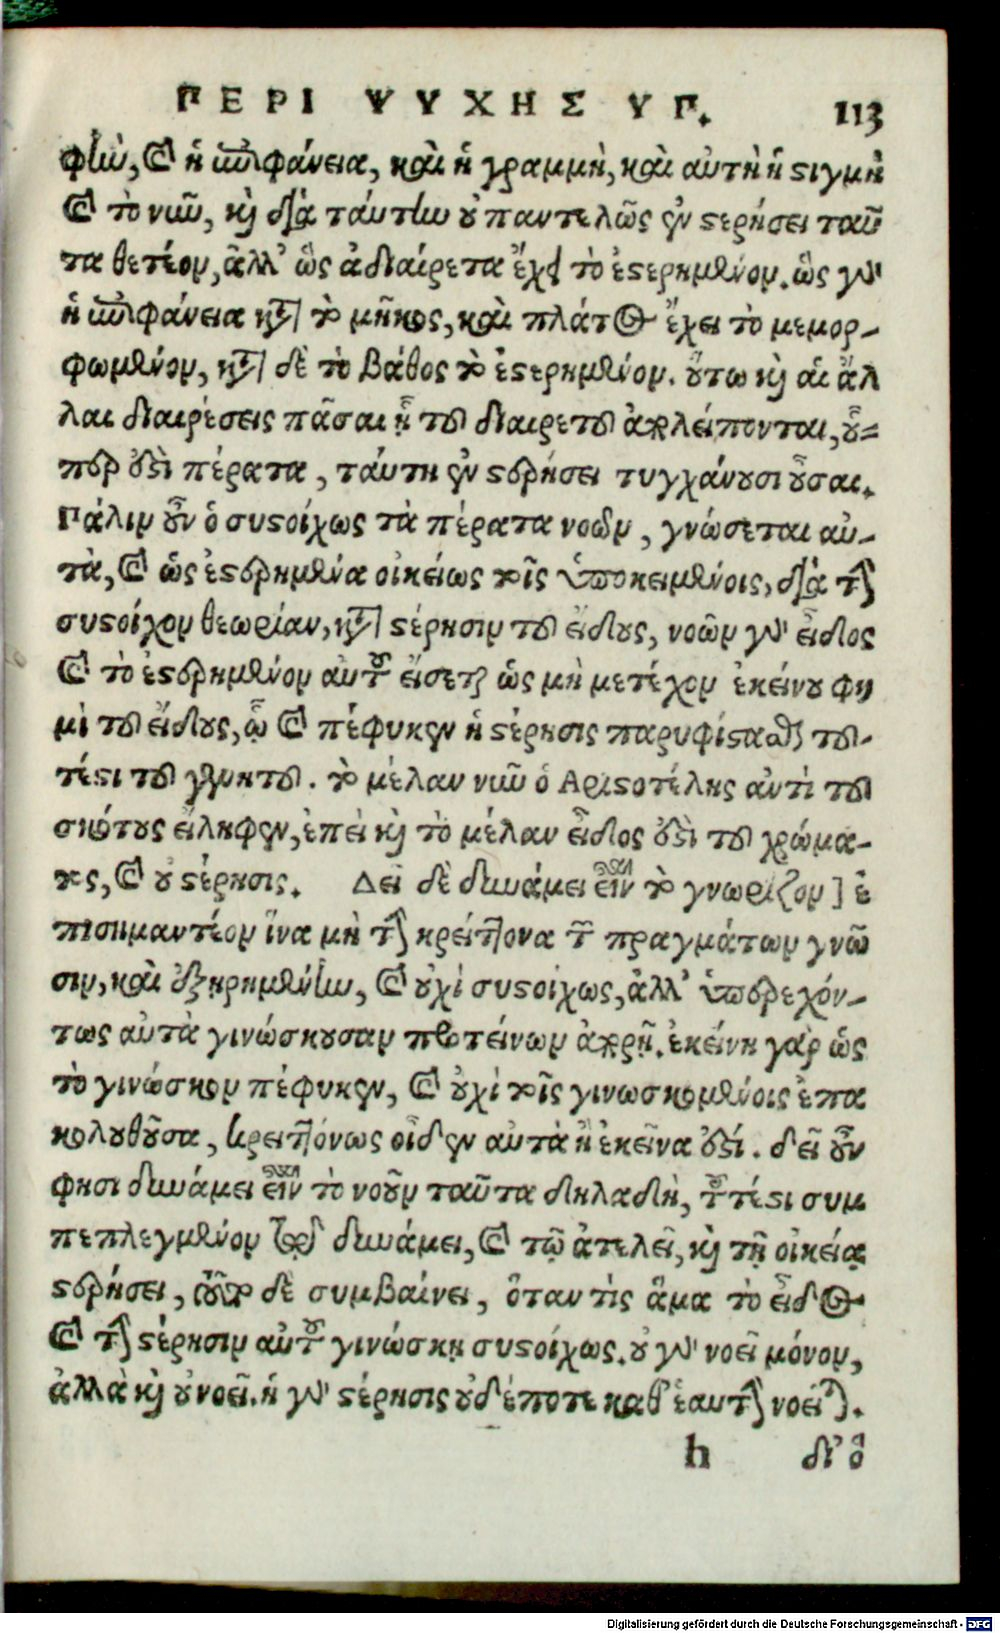 ΠΕΡΙ ΨΥΧΗΣ ΥΠ. 113
φὴν, καὶ ἡ ἐπιφάνεια, καὶ ἡ γραμμὴ, καὶ αὐτὴ ἡ στιγμὴ
καὶ τὸ νῦν, καὶ διὰ ταύτην οὐ παντελῶς ἐν στερήσει ταῦ
τα θετέον, ἀλλ' ὡς ἀδιαίρετα ἔχει τὸ ἐστερημένον. ὡς γὰρ
ἡ ἐπιφάνεια κατὰ τὸ μῆκος, καὶ πλάτος ἔχει τὸ μεμορ-
φωμένον, κατὰ δὲ τὸ βάθος τὸ ἐστερημένον. οὕτω καὶ αἱ ἄλ
λαι διαιρέσεις πᾶσαι ᾗ τοῦ διαιρετοῦ ἀπολείπονται, οὗ-
περ εἰσὶ πέρατα, ταύτῃ ἐν στερήσει τυγχάνουσι οὖσαι.
Πάλιν οὖν ὁ συστοίχως τὰ πέρατα νοῶν, γνώσεται αὐ-
τὰ, καὶ ὡς ἐστερημένα οἰκείως τοῖς ὑποκειμένοις, διὰ τὴν
συστοίχον θεωρίαν, κατὰ στέρησιν τοῦ εἴδους, νοῶν γὰρ εἶδος
καὶ τὸ ἐστερημένον αὐτοῦ εἴσεται ὡς μὴ μετέχον ἐκείνου φη
μὶ τοῦ εἴδους, ᾧ καὶ πέφυκεν ἡ στέρησις παρυφίστασθαι του-
τέστι τοῦ γεννητοῦ. τὸ μέλαν νῦν ὁ Αριστοτέλης ἀντὶ τοῦ
σκότους εἴληφεν, ἐπεὶ καὶ τὸ μέλαν εἶδος ἐστὶ τοῦ χρώμα-
τος, καὶ οὐ στέρησις. Δεῖ δὲ δυνάμει εἶναι τὸ γνωρίζον] ἐ
πισημαντέον ἵνα μὴ τὴν κρείττονα τῶν πραγμάτων γνῶ
σιν, καὶ ἐξῃρημένην, καὶ οὐχὶ συστοίχως, ἀλλ' ὑπερεχόν-
τως αὐτὰ γινώσκουσαν προτείνων ἀπορῇ. ἐκείνη γὰρ ὡς
τὸ γινώσκον πέφυκεν, καὶ οὐχὶ τοῖς γινωσκομένοις ἐπα
κολουθοῦσα, κρειττόνως οἶδεν αὐτὰ ἢ ἐκεῖνα ἐστί. δεῖ οὖν
φησι δυνάμει εἶναι τὸ νοοῦν ταῦτα δηλαδὴ, τουτέστι συμ
πεπλεγμένον τῷ δυνάμει, καὶ τῷ ἀτελεῖ, καὶ τῇ οἰκείᾳ
στερήσει, τοῦτο δὲ συμβαίνει, ὅταν τὶς ἅμα τὸ εἶδος
καὶ τὴν στέρησιν αὐτοῦ γινώσκῃ συστοίχως. οὐ γὰρ νοεῖ μόνον,
ἀλλὰ καὶ οὐ νοεῖ. ἡ γὰρ στέρησις οὐδέποτε καθ' ἑαυτὴν νοεῖται.
h δι' ὃ
Digitalisierung gefördert durch die Deutsche Forschungsgemeinschaft - DFG